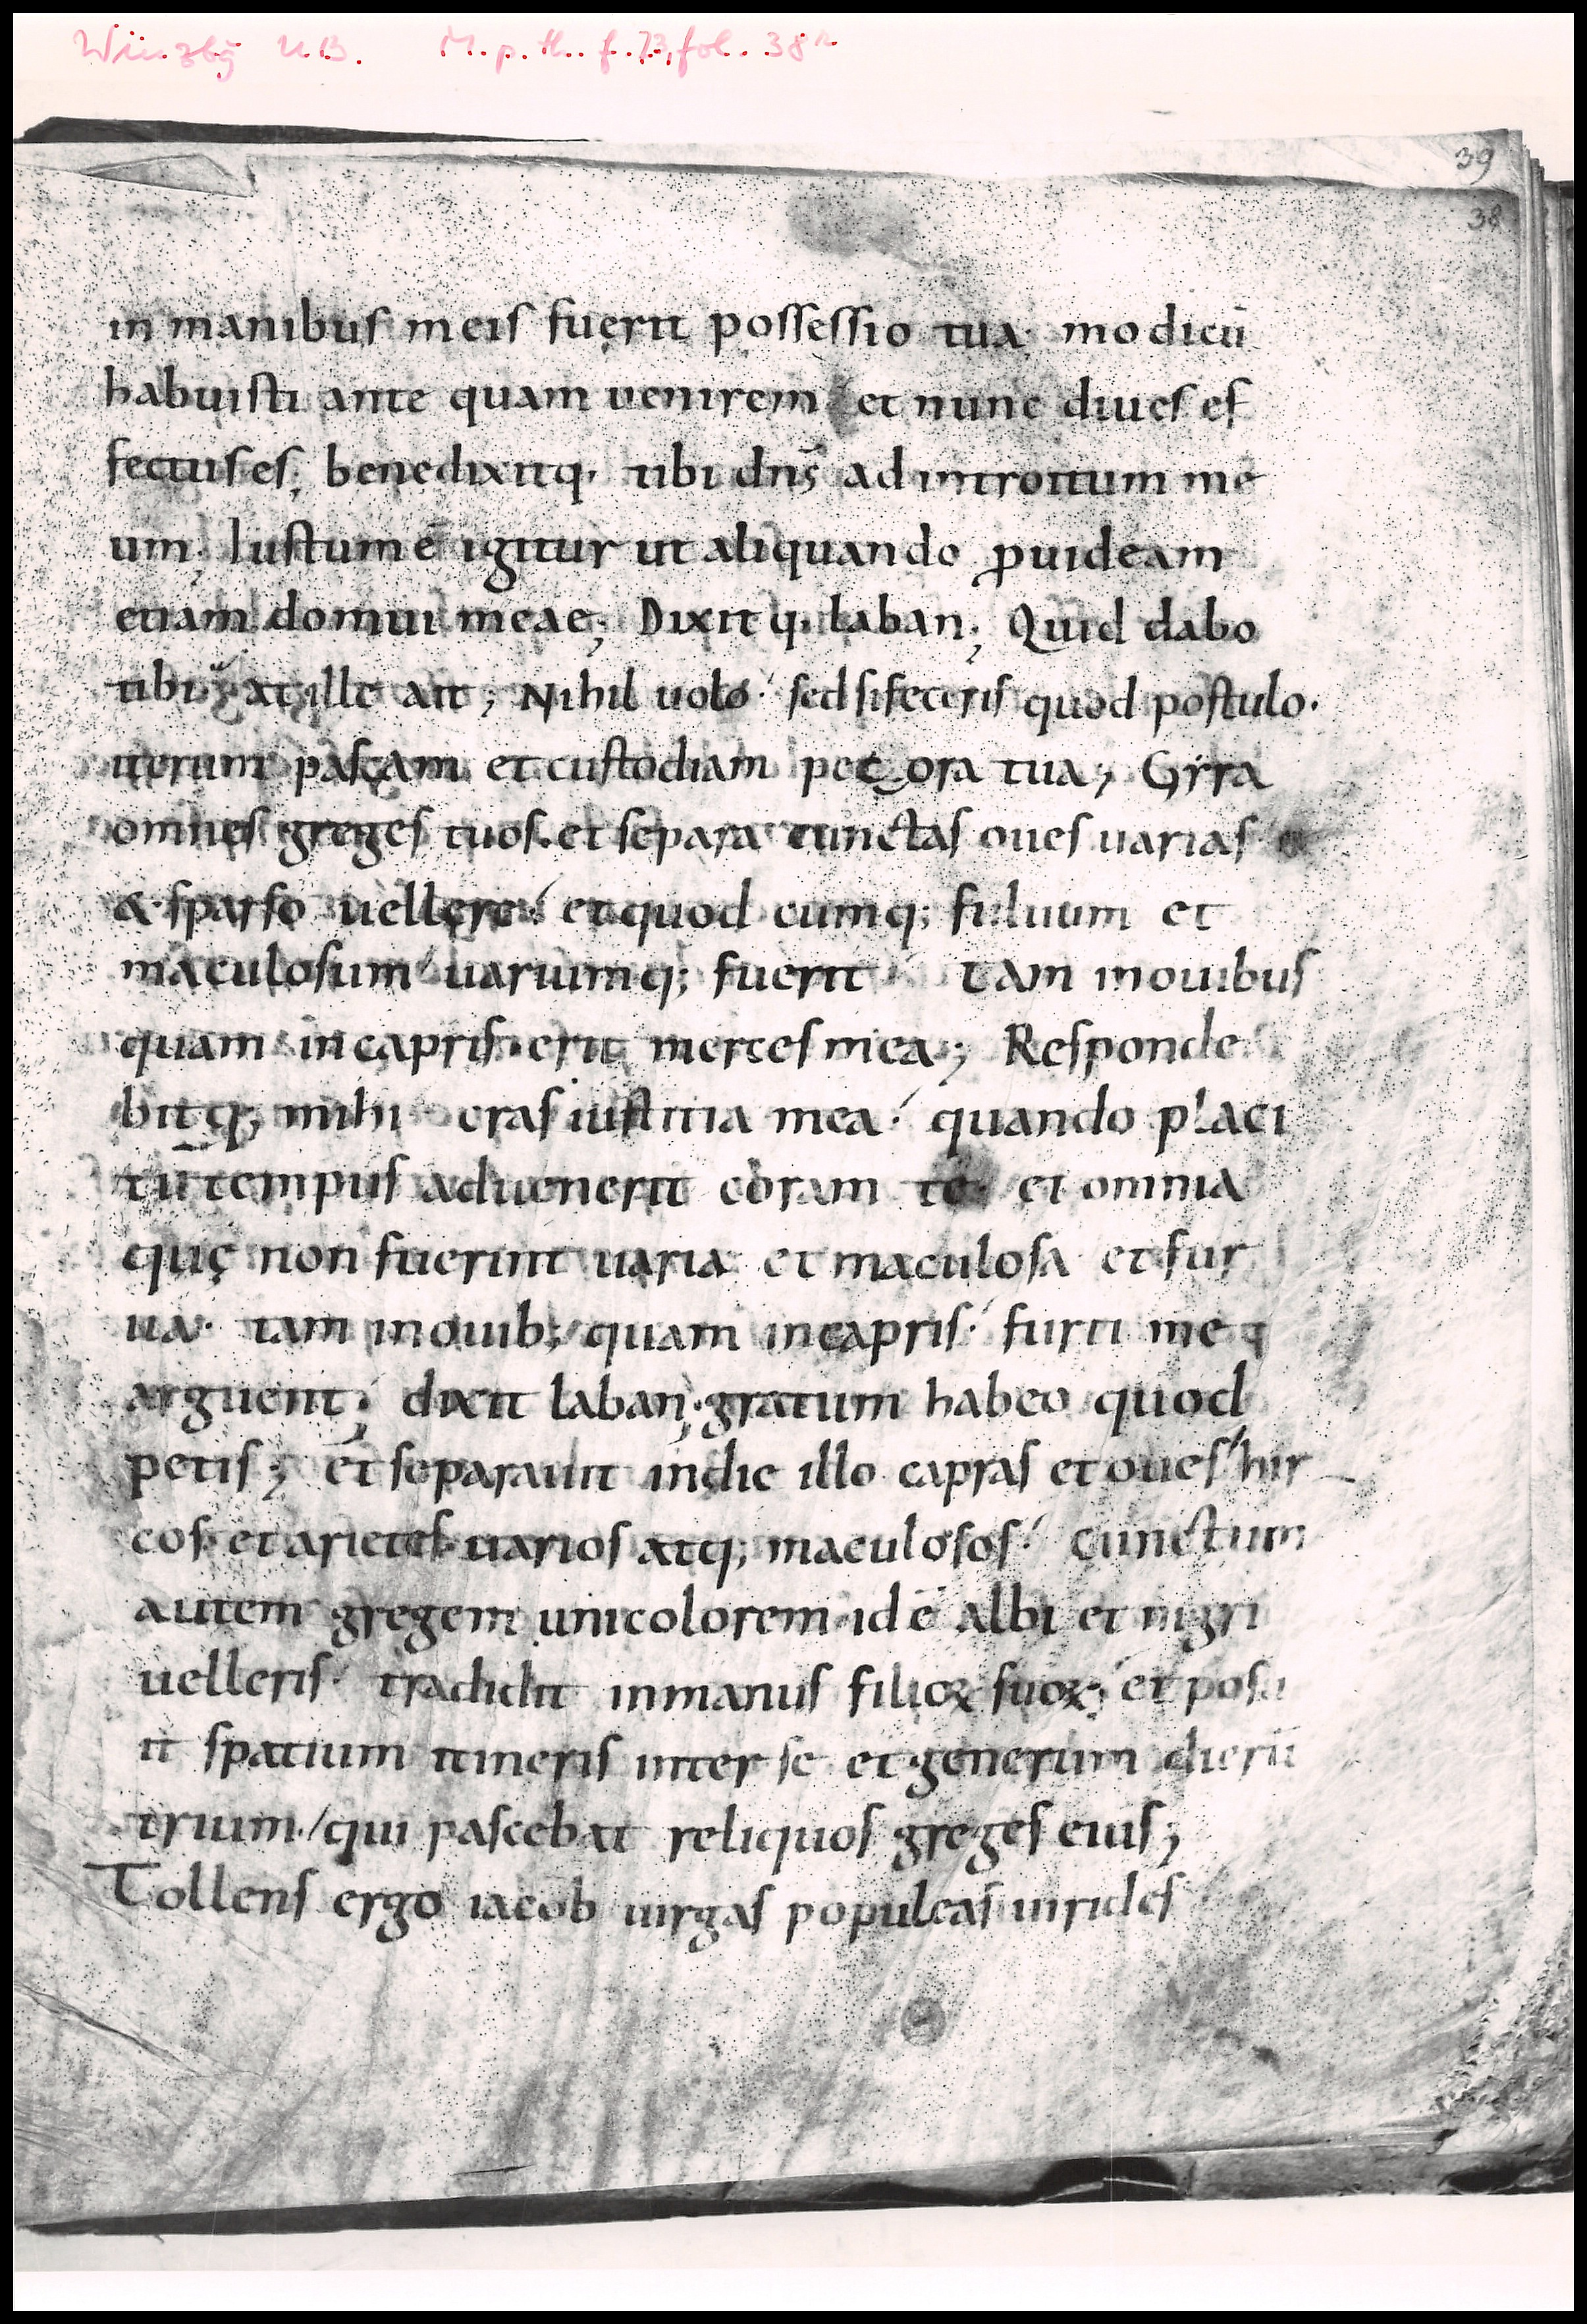 Würzbg UB. M.p.th.f.73, fol. 38r
39
38
in manibus meis fuerit possessio tua· modicū
habuisti ante quam uenirem et nunc diues ef
fectus es; benedixitq· tibi dn̄s ad introitum me
um; Iustum ē igitur ut aliquando ꝓuideam
etiam domui meae; Dixitq· laban; Quid dabo
tibi at ille ait; Nihil uolo· sed si feceris quod postulo·
iterum pascam et custodiam pecora tua; Gyra
omnes greges tuos· et separa cunctas oues uarias
& sparso uellere· et quod cumq; fuluum et
maculosum uariumq; fuerit Tam in ouibus
quam in capris· erit merces mea; Responde
bitq; mihi cras iustitia mea· quando placi
tū tempus aduenerit coram te· et omnia
quę non fuerint uaria et maculosa et fur
ua· tam in ouib; quam in capris· furti me
arguent; dixit laban; gratum habeo quod
petis; et separauit in die illo capras et oues hir
cos· et arietes uarios atq; maculosos· cunctum
autem gregem unicolorem· id ē albi et nigri
uelleris· tradidit in manus filioꝝ suoꝝ; et posu
it spatium itineris inter se et generum dierū
trium·/ qui pascebat reliquos greges eius;
Tollens ergo iacob uirgas populeas uirides